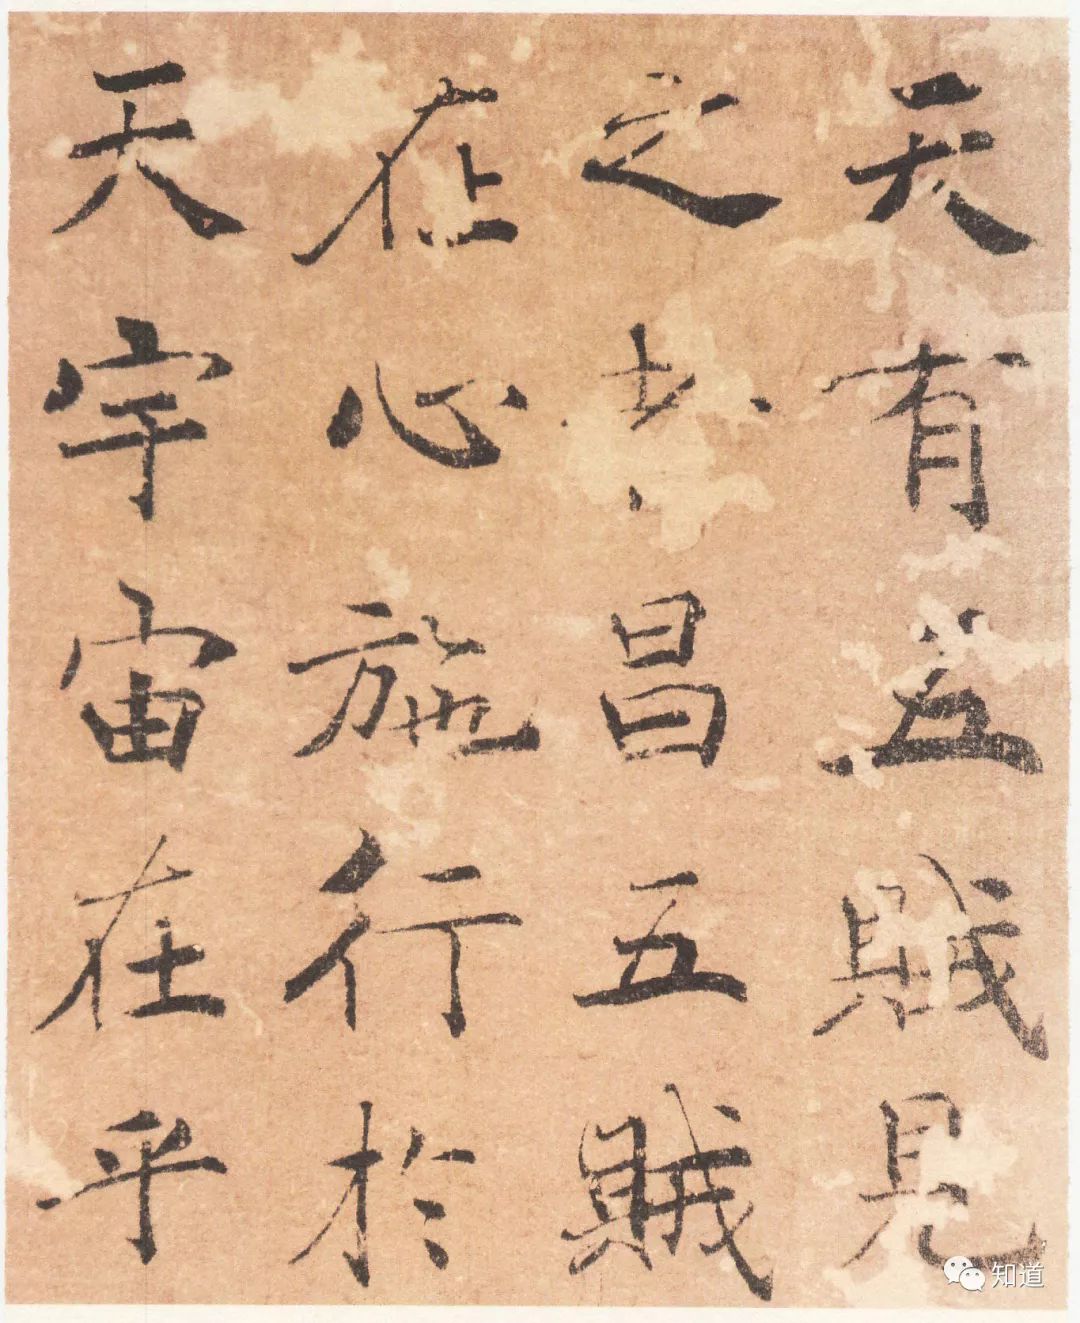 天有五賊見
之者昌五賊
在心施行於
天宇宙在乎
知道